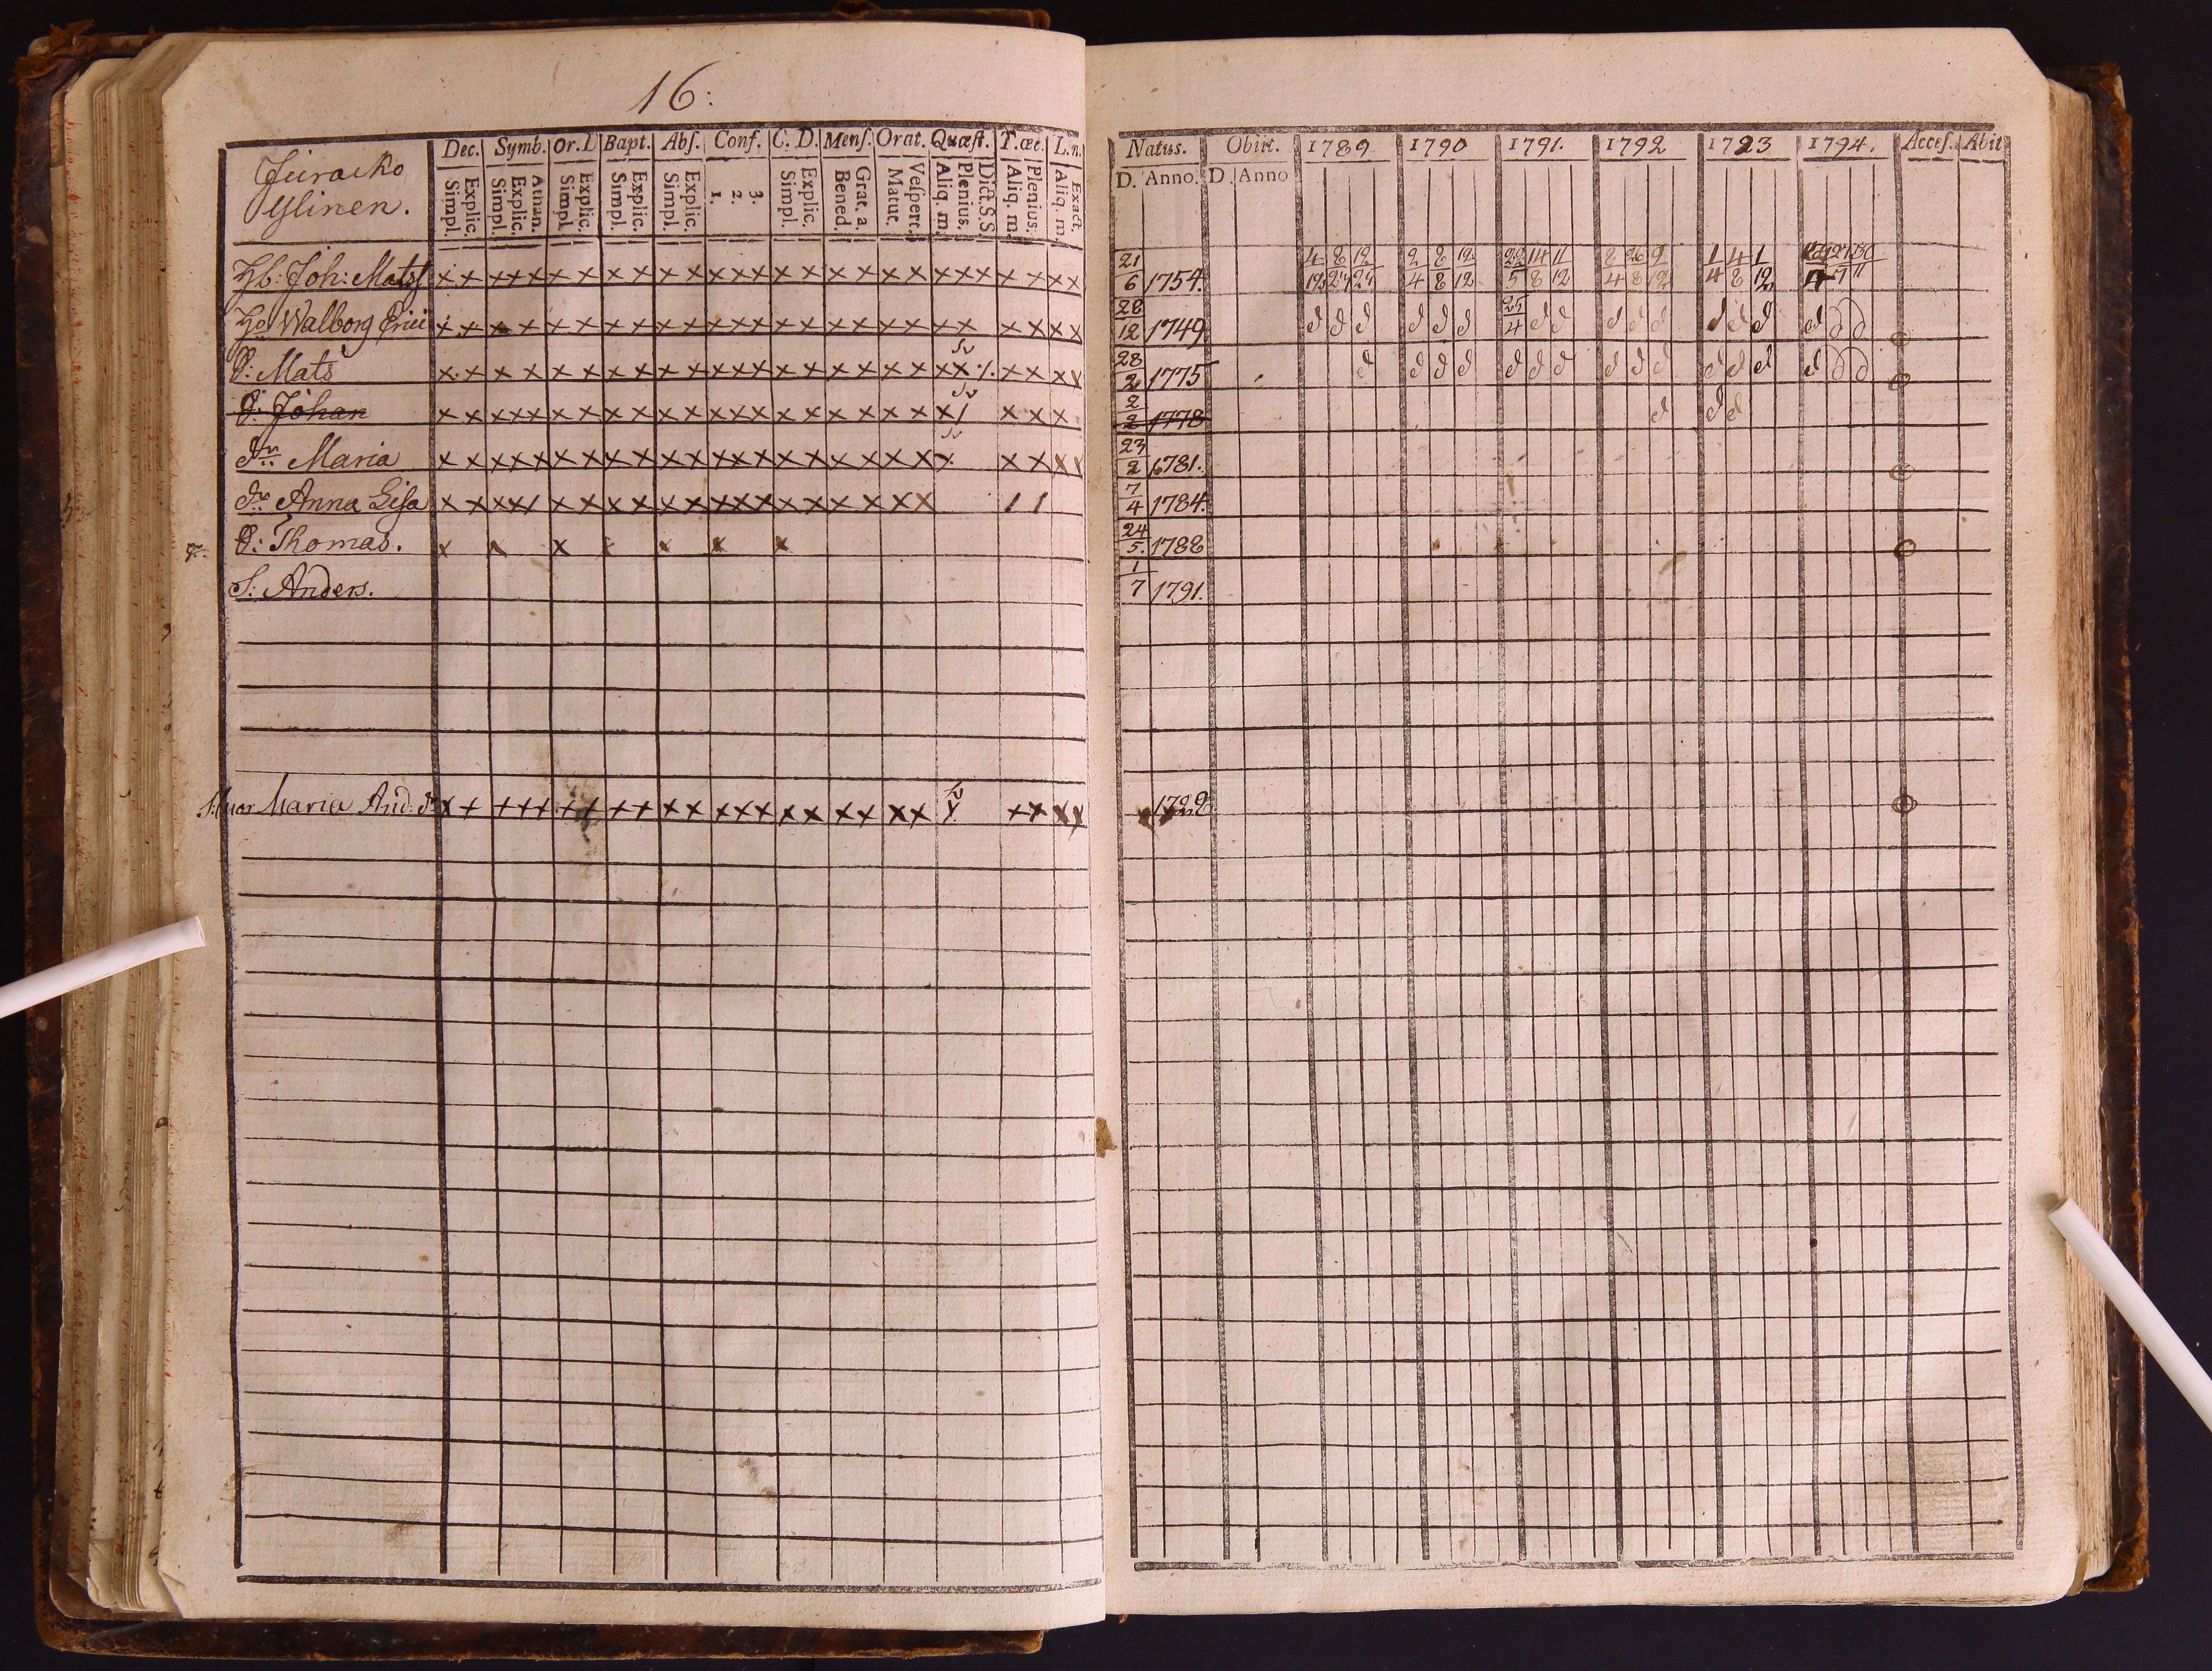 16:
Dec. Symb. Or. D Bapt. Abs. Conf. C. D. Mens. Orat. Quæst. T. œc. L. n.
Juracko
Ylinen.
Simpl. Explic. Simpl. Explic. Athan. Simpl. Explic. Simpl. Explic. Simpl. Explic. 1. 2. 3. Simpl. Explic. Bened. Grat. a. Matut. Vespert. Aliq. m. Plenius. Dict. S. S. Aliq. m. Plenius. Aliq. m Exact.
Hb: Joh: Mats
Ho Walborg Erici
S: Mats
S: Johan
dr: Maria
dr Anna Lisa
S: Thomas.
S: Anders.
Maria And: dr
Natus. Obiit. 1789 1790 1791. 1792 1793 1794. Acces. Abit
D. Anno. D. Anno
21/6 1754. 4/19 8/24 12/29 2/4 8/8 12/12 22/5 14/8 11/12 8/4 26/8 9/12 1/4 4/8 1/12
28/12 1749 d d d d d d 25/4 d d d d d d d d d d d
28/2 1775 d d d d d d d d d d d d d d d d
2/2 1778 d d d
23/2 1781.
7/4 1784.
24/5. 1788
1/7 1791.
1728.